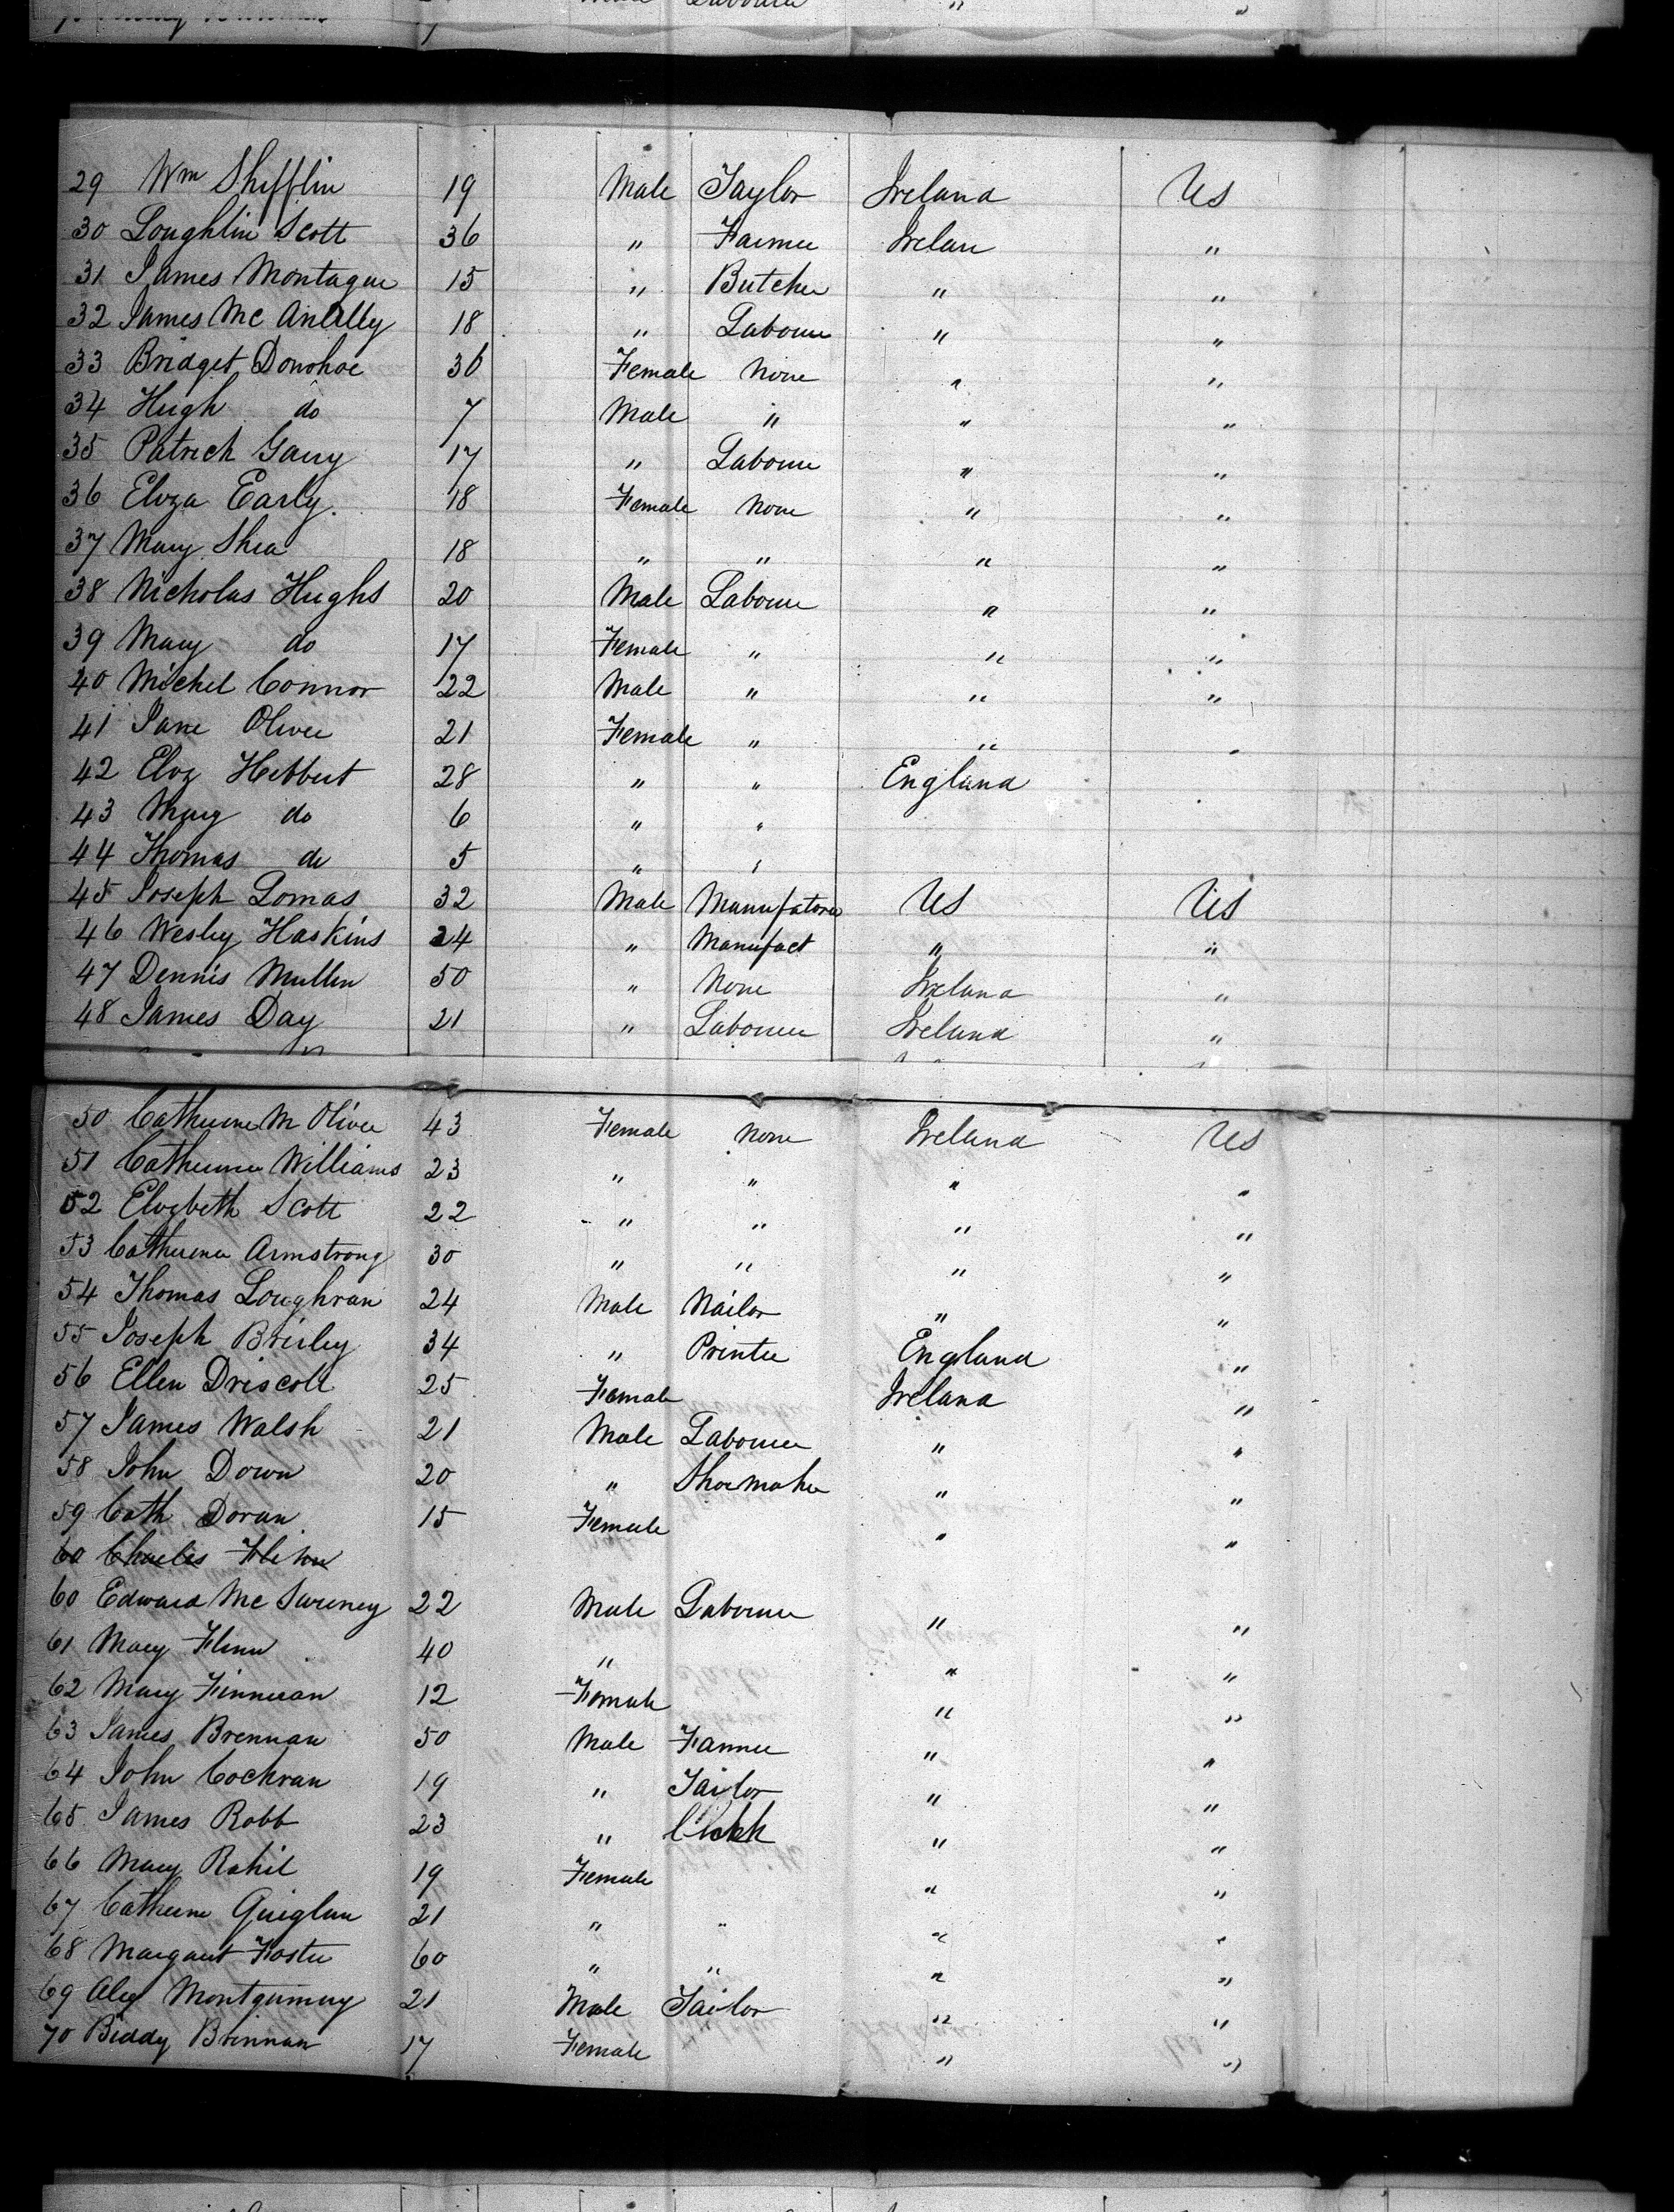 Male Labourer " "
29 Wm Shifflin 19 Male Taylor Ireland US
30 Loughlin Scott 36 " Farmer Irelan "
31 James Montague 15 " Butcher " "
32 James Mc 18 " Labourer " "
33 Bridget Donohoe 36 Female None " "
34 Hugh do 7 Male " " "
35 Patrick Garry 17 " Labourer " "
36 Eliza Early. 18 Female None " "
37 Mary Shea 18 " " " "
38 Nicholas Hughs 20 Male Labourer " "
39 Mary do 17 Female " " "
40 Michel Connor 22 Male " " "
41 Jane Oliver 21 Female " " "
42 Eliz Hebbert 28 " " England
43 Mary do 6 " "
44 Thomas do 5 " "
45 Joseph Lomas 32 Male Manufatorer US US
46 Wesley Haskins 24 " Manufact " "
47 Dennis Mullen 50 " None Ireland "
48 James Day 21 " Labourer Ireland "
50 Catherine M Oliver 43 Female None Ireland US
51 Catherine Williams 23 " " " "
52 Elizbeth Scott 22 " " " "
53 Catherine Armstrong 30 " " " "
54 Thomas Loughran 24 Male Nailor " "
55 Joseph Brierley 34 " Printer England "
56 Ellen Driscoll 25 Female Ireland "
57 James Walsh 21 Male Labourer " "
58 John Down 20 " Shoemaker " "
59 Cath Doran 15 Female " "
60 Charles
60 Edward Mc Sweeney 22 Male Labourer " "
61 Mary Flinn 40 " " "
62 Mary Finneran 12 Female " "
63 James Brennan 50 Male Farmer " "
64 John Cochran 19 " Tailor " "
65 James Robb 23 " Clerk " "
66 Mary Rahil 19 Female " "
67 Catherine 21 " " " "
68 Margaret Foster 60 " " " "
69 Alex Montgumery 21 Male Tailor " "
70 Biddy Brinnan 17 Female " "